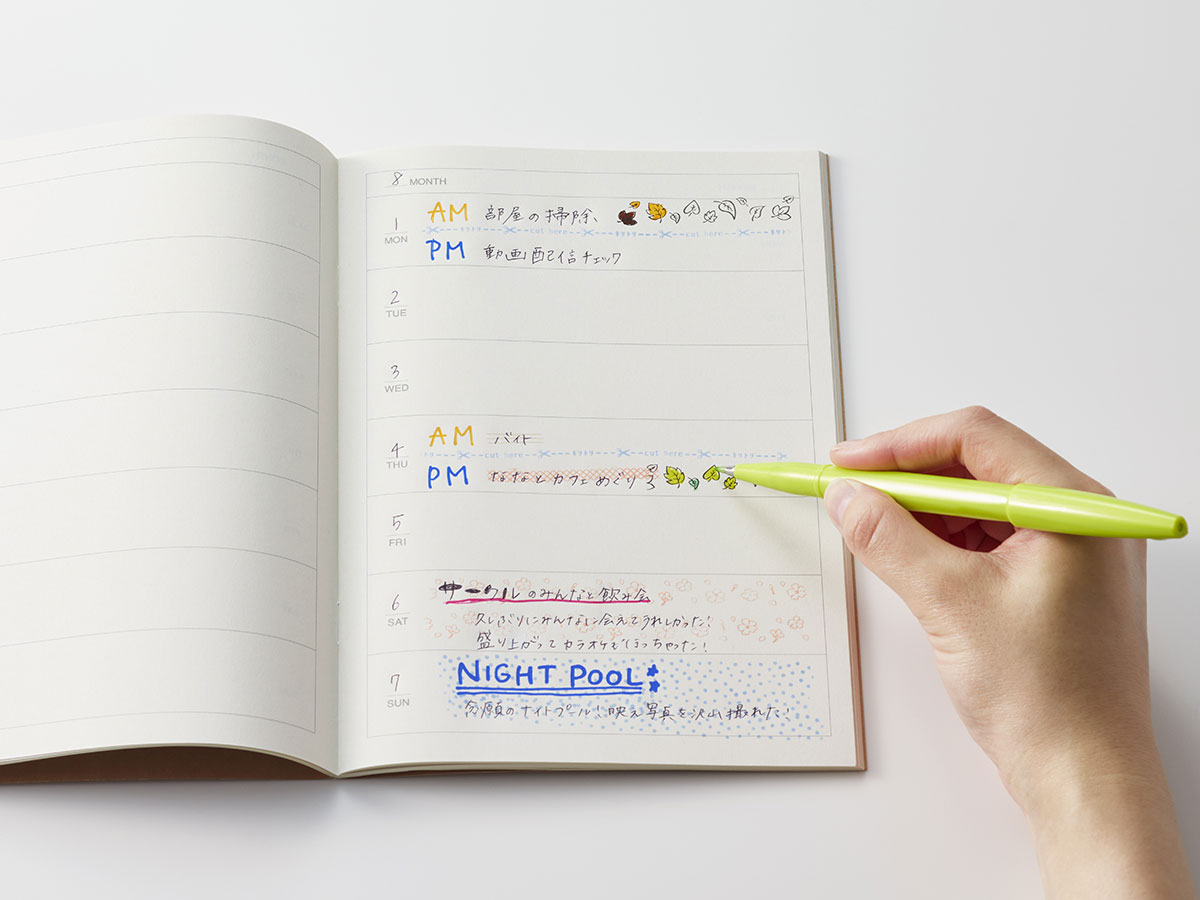 8 MONTH
1 MON
AM 部屋の掃除、
キリトリ cut here キリトリ cut here キリトリ
PM 動画配信チェック
2 TUE
3 WED
4 THU
AM バイト
cut here キリトリ cut here キリトリ
PM ななとカフェめぐり
5 FRI
6 SAT
サークルのみんなと飲み会
久しぶりにみんなに会えてうれしかった!
盛り上がってカラオケも行っちゃった!
7 SUN
NIGHT POOL
念願のナイトプール!映え写真を沢山撮れた!